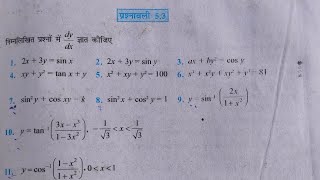 प्रश्नावली 5.3
निम्नलिखित प्रश्नों में dy/dx ज्ञात कीजिए
1. 2x + 3y = sin x 2. 2x + 3y = sin y 3. ax + by² = cos y
4. xy + y² = tan x + y 5. x² + xy + y² = 100 6. x³ + x²y + xy² + y³ = 81
7. sin² y + cos xy = k 8. sin² x + cos² y = 1 9. y = sin⁻¹ (2x/(1 + x²))
10. y = tan⁻¹ ((3x − x³)/(1 − 3x²)), −1/√3 < x < 1/√3
11. y = cos⁻¹ ((1 − x²)/(1 + x²)), 0 < x < 1